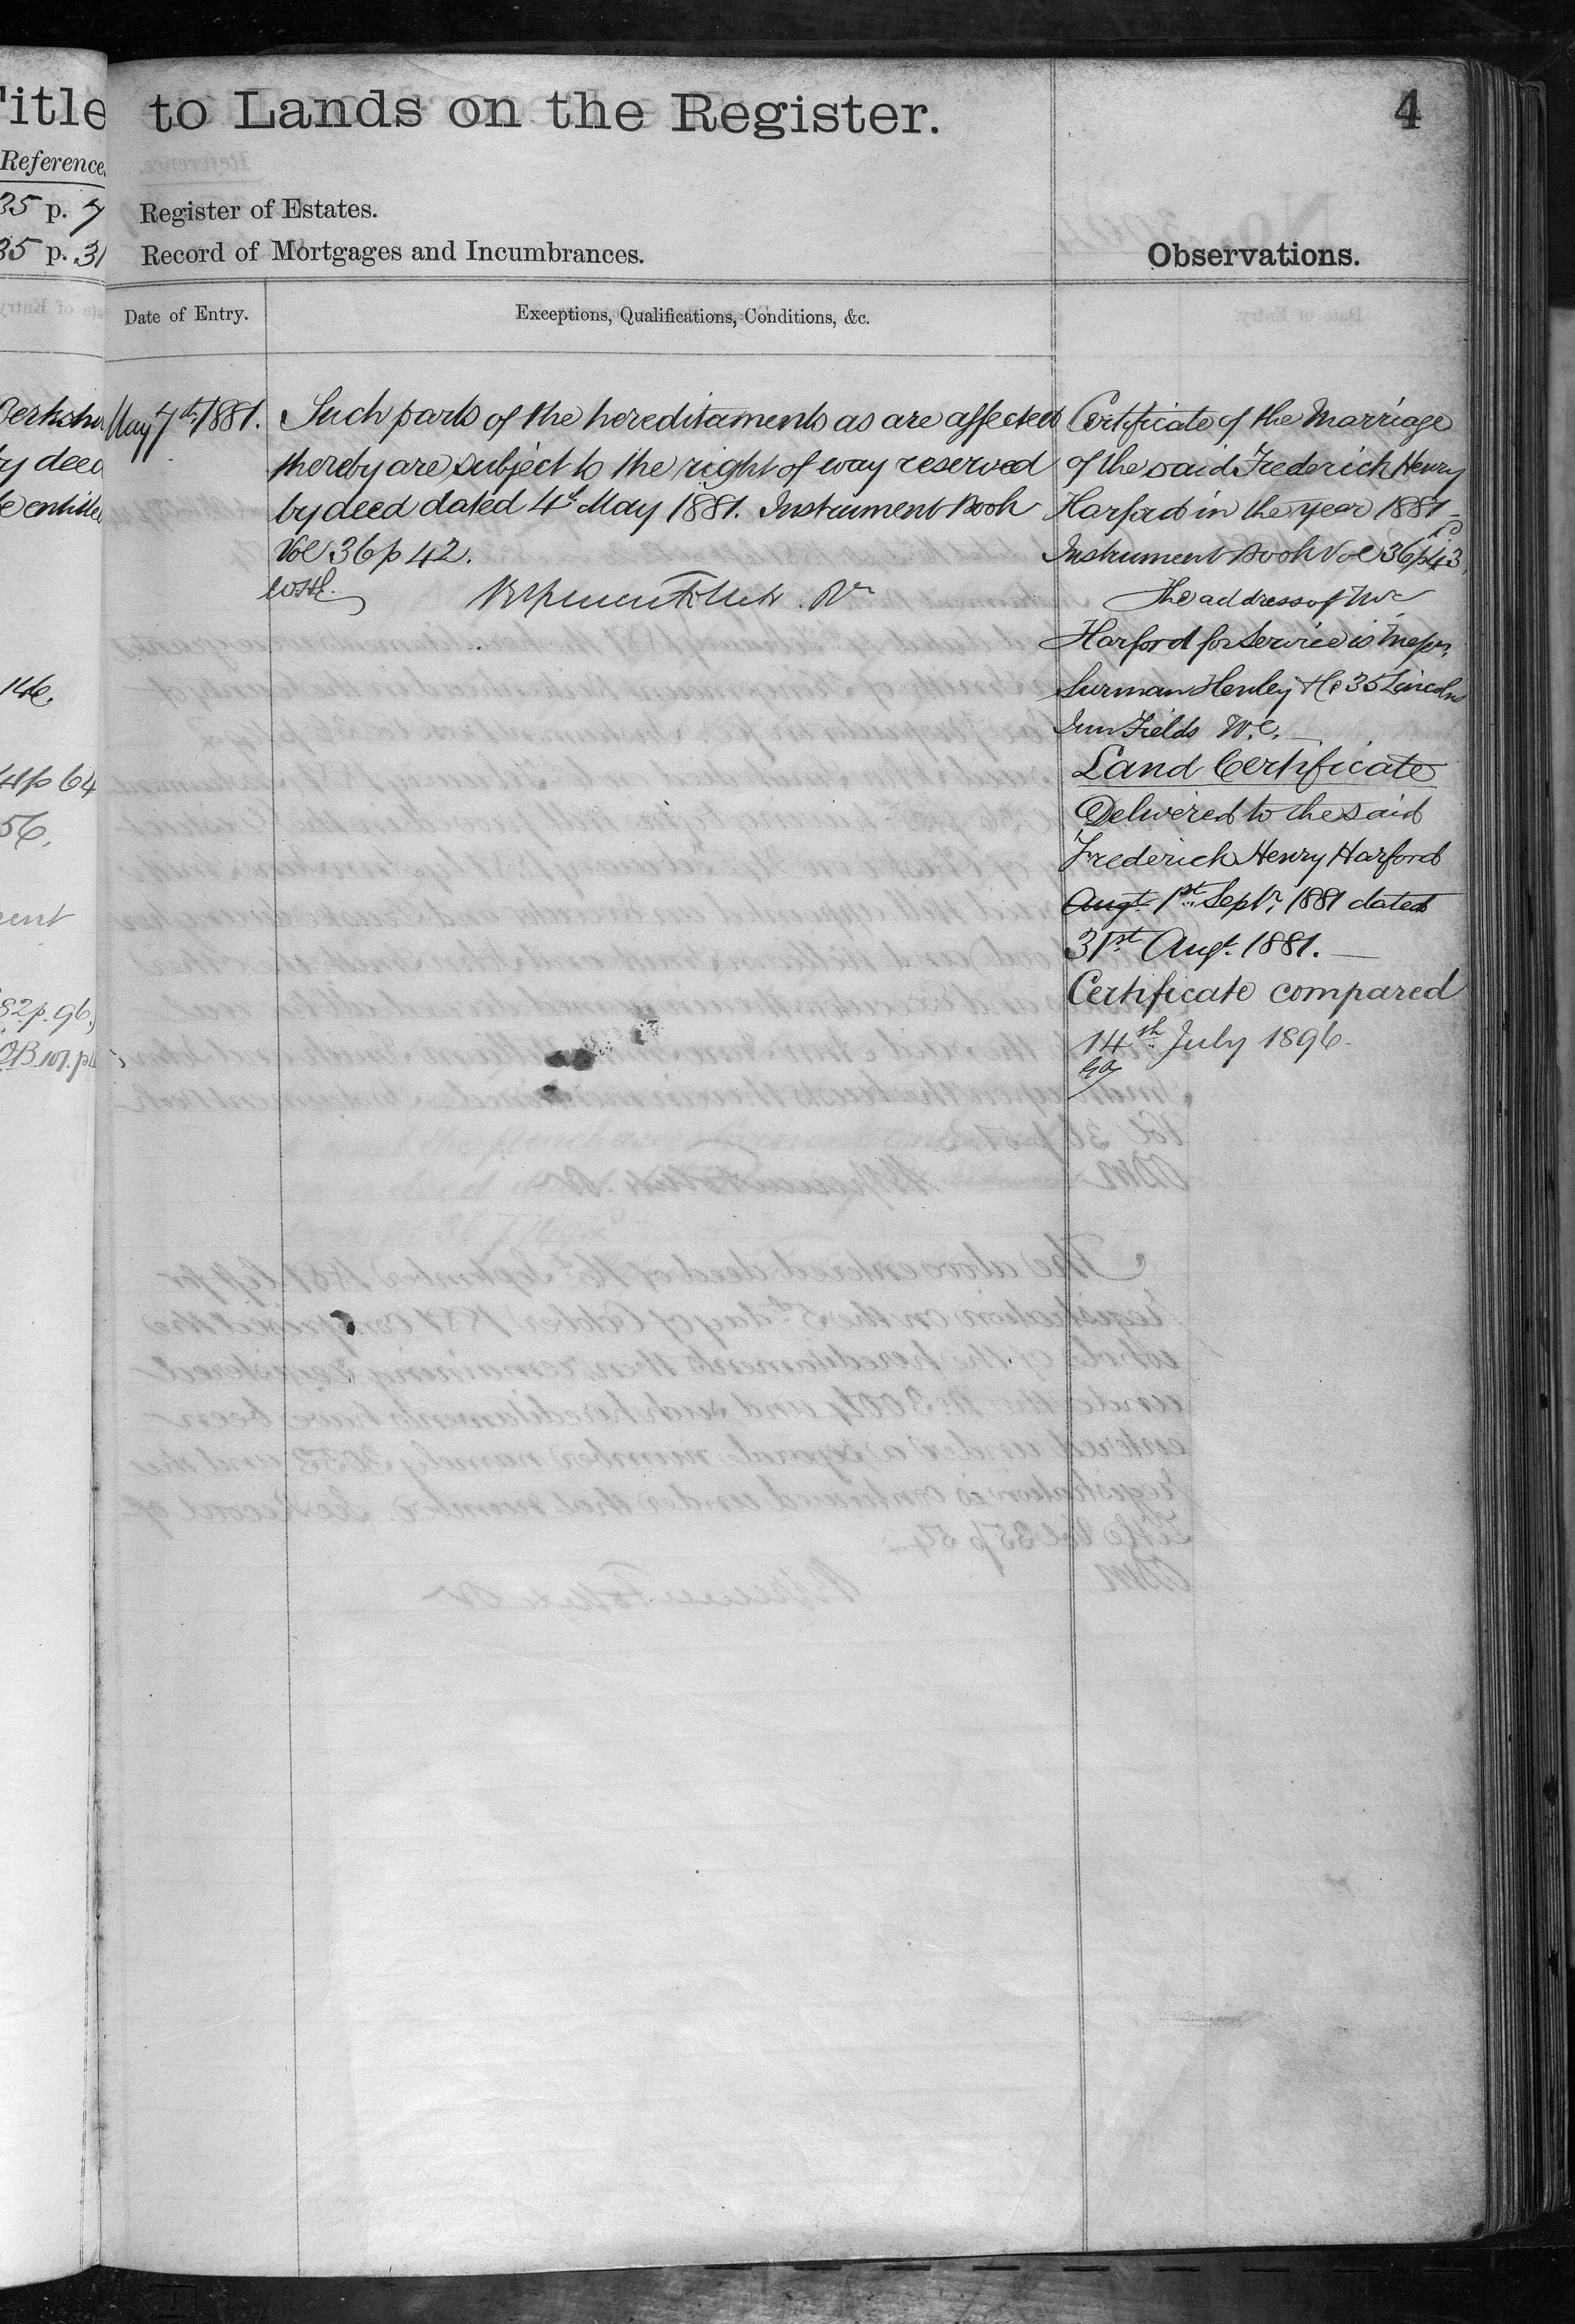 Title to Lands on the Register.
4
Reference.
35 p. 7 Register of Estates.
35 p. 31 Record of Mortgages and Incumbrances.
Observations.
Date of Entry.
Exceptions, Qualifications, Conditions, &c.
May 7th 1881.
Such parts of the hereditaments as are affected
thereby are subject to the right of way reserved
by deed dated 4th May 1881. Instrument Book
Vol 36 p 42.
Certificate of the Marriage
of the said Frederick Henry
Harford in the year 1881
Instrument Book Vol 36 p 43,
The address of Mr
Harford for Service is Messrs.
Surman Henley & Co 35 Lincolns
Inn Fields W.C.
Land Certificate
Delivered to the said
Frederick Henry Harford
Augt. 1st Septr. 1881 dated
31st Augt. 1881.
Certificate compared
14th July 1896.
by deed
entitled
146.
p 64
56,
ent
82 p. 96,